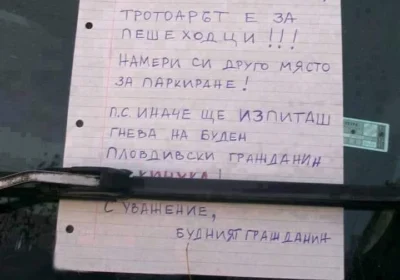 ТРОТОАРЪТ Е ЗА
ПЕШЕХОДЦИ!!!
НАМЕРИ СИ ДРУГО МЯСТО
ЗА ПАРКИРАНЕ!
П.С. ИНАЧЕ ЩЕ ИЗПИТАШ
ГНЕВА НА БУДЕН
ПЛОВДИВСКИ ГРАЖДАНИН
С УВАЖЕНИЕ,
БУДНИЯТ ГРАЖДАНИН